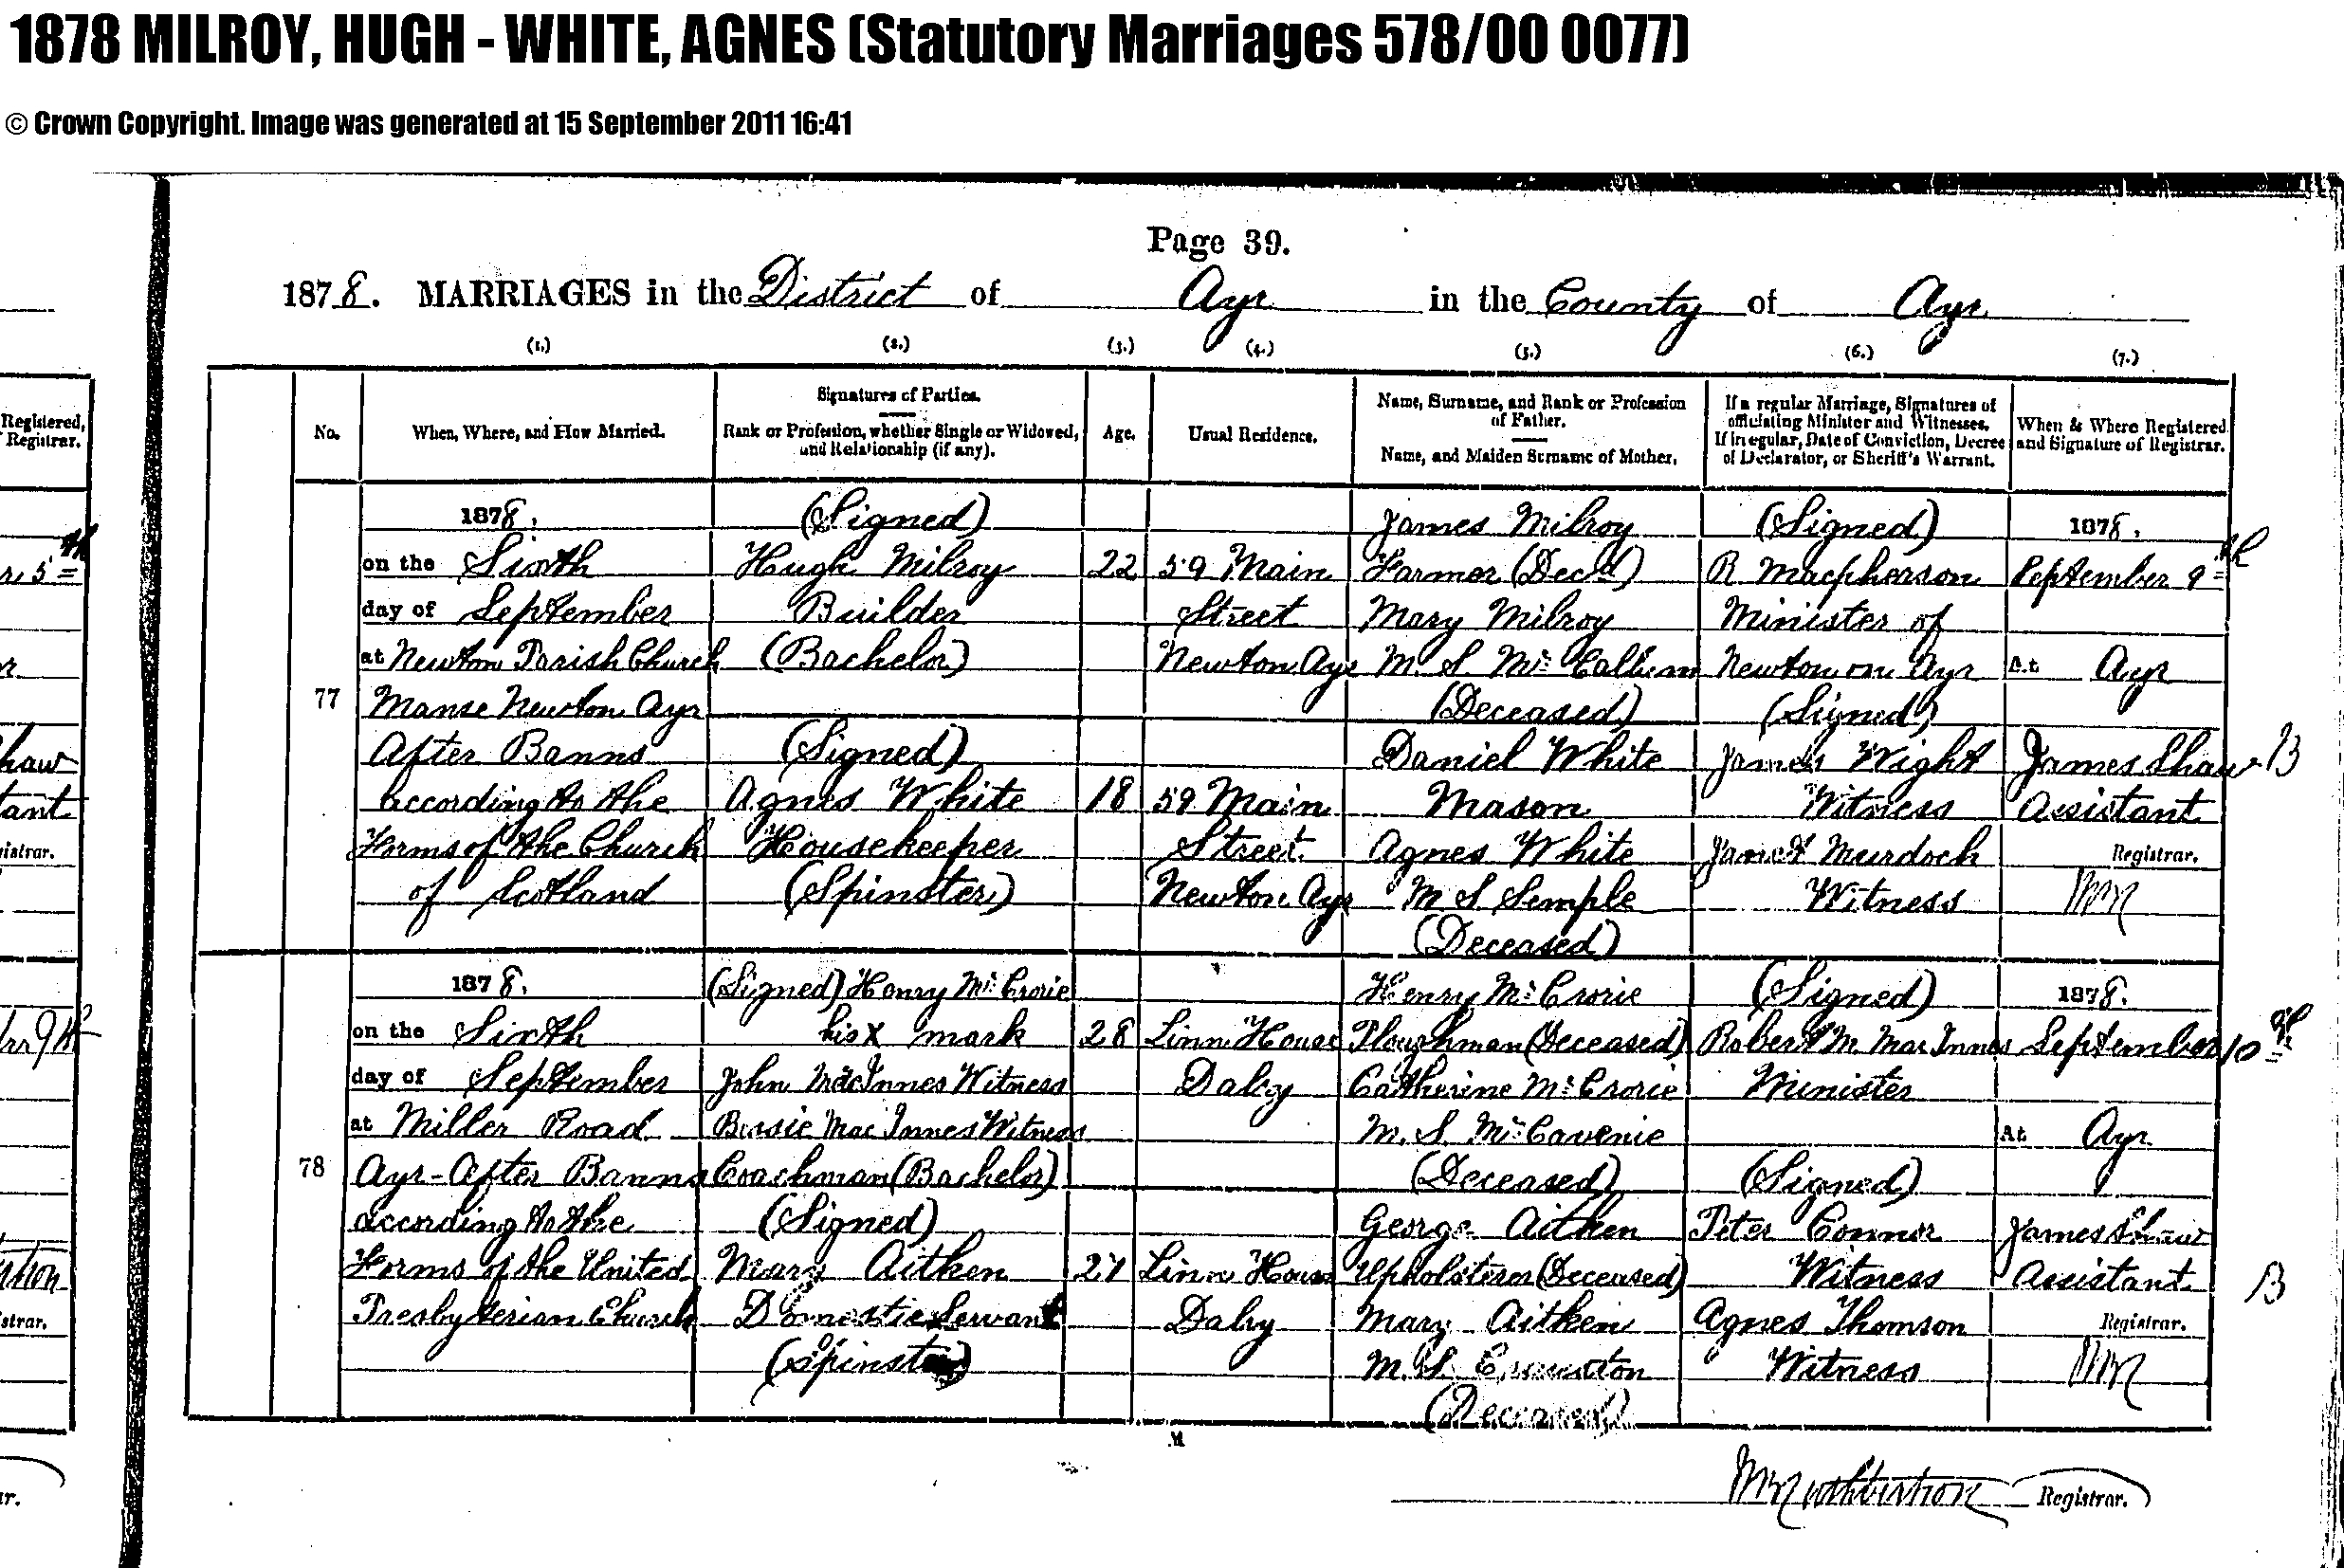 1878 MILROY, HUGH - WHITE, AGNES (Statutory Marriages 578/00 0077)
© Crown Copyright. Image was generated at 15 September 2011 16:41
Page 39.
1878. MARRIAGES in the District of Ayr in the County of Ayr
(1.) (2.) (3.) (4.) (5.) (6.) (7.)
No.
When, Where, and How Married.
Signatures of Parties.
Rank or Profession, whether Single or Widowed,
and Relationship (if any).
Age.
Usual Residence.
Name, Surname, and Rank or Profession
of Father.
Name, and Maiden Surname of Mother.
If a regular Marriage, Signatures of
officiating Minister and Witnesses.
If irregular, Date of Conviction, Decree
of Declarator, or Sheriff's Warrant.
When & Where Registered
and Signature of Registrar.
77
1878.
on the Sixth
day of September
at Newton Parish Church
Manse Newton Ayr
After Banns
according to the
Forms of the Church
of Scotland
(Signed)
Hugh Milroy
Builder
(Bachelor)
(Signed)
Agnes White
Housekeeper
(Spinster)
22
18
59 Main
Street
Newton Ayr
59 Main
Street
Newton Ayr
James Milroy
Farmer (Decd)
Mary Milroy
M. S. McCallum
(Deceased)
Daniel White
Mason
Agnes White
M S Semple
(Deceased)
(Signed)
R. Macpherson
Minister of
Newton on Ayr
(Signed)
James Wright
Witness
Janet Murdoch
Witness
1878.
September 9th
At Ayr
James Shaw
Assistant
Registrar.
B
78
1878.
on the Sixth
day of September
at Miller Road
Ayr - After Banns
according to the
Forms of the United
Presbyterian Church
(Signed) Henry McCrorie
his X mark
John MacInnes Witness
Bessie MacInnes Witness
Coachman (Bachelor)
(Signed)
Mary Aitken
Domestic Servant
(Spinster)
28
27
Linn House
Dalry
Linn House
Dalry
Henry McCrorie
Ploughman (Deceased)
Catherine McCrorie
M. S. McCavenie
(Deceased)
George Aitken
Upholsterer (Deceased)
Mary Aitken
M. S.
(Deceased)
(Signed)
Robert M. MacInnes
Minister
(Signed)
Peter Connor
Witness
Agnes Thomson
Witness
1878.
September 10th
At Ayr
James Shaw
Assistant
Registrar.
B
Registrar.
Registered,
Registrar.